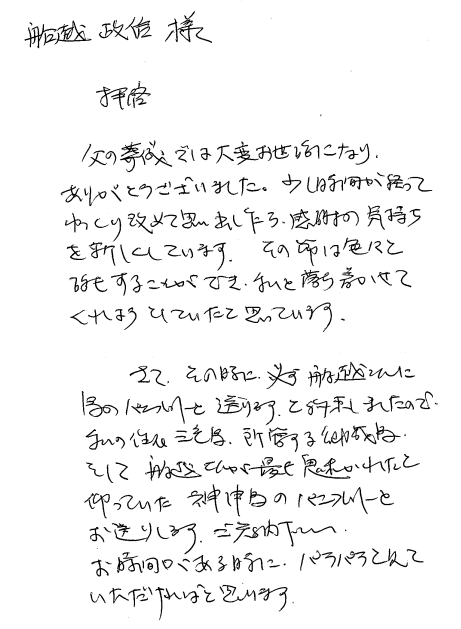 船越 政治 様
拝啓
父の葬儀では大変お世話になり、
ありがとうございました。少し時間が経って
ゆっくり改めて思い出したら、感謝の気持ち
を新しくしています。その節は色々と
話をすることができ、私を落ち着かせて
くれようとしていたと思っています。
さて、その時に、必ず船越さんに
島のパンフレットを送ります、と約束しましたので、
私の住む三宅島、所管する御蔵島、
そして船越さんが最も思末かれたと
仰っていた神津島のパンフレットを
お送りします。ご笑納下さい。
お時間がある時に、パラパラと見て
いただければと思います。